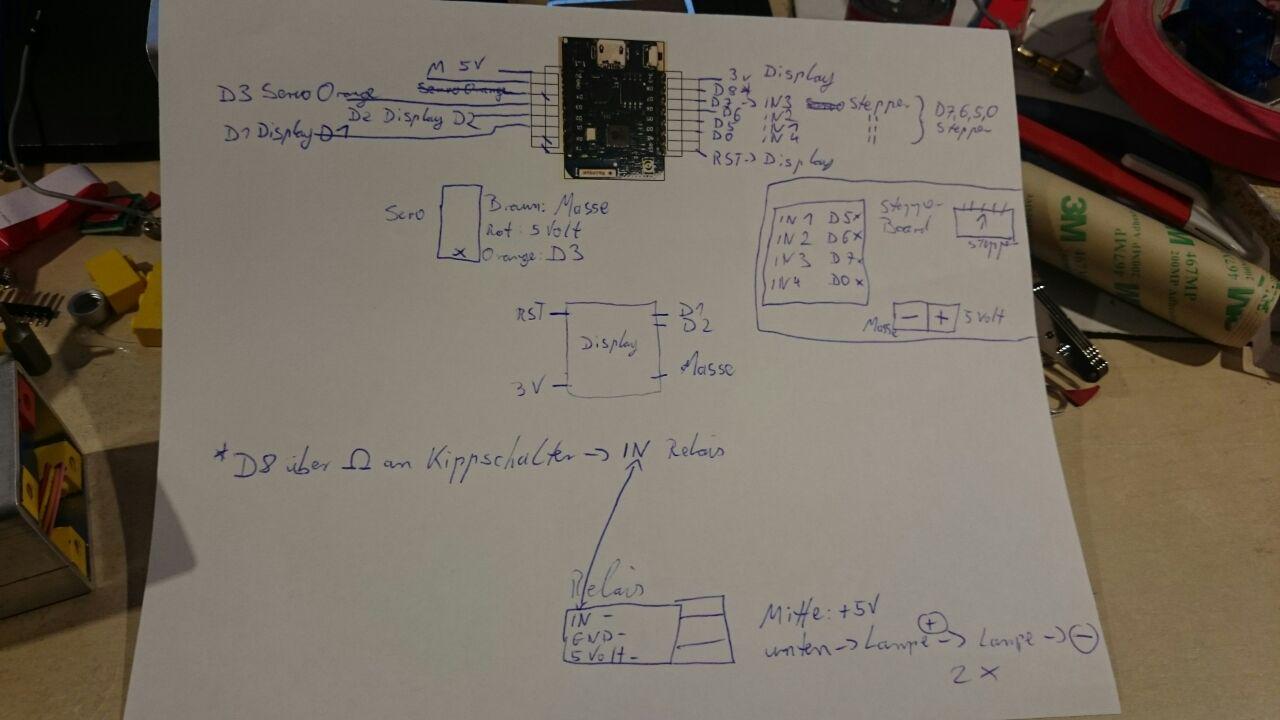 M 5V
D3 Servo Orange
D2 Display D2
D1 Display D1
3V Display
D8*
D7 -> IN3 Stepper
D6 IN2 "
D5 IN1 "
D0 IN4
D7,6,5,0
Stepper
RST -> Display
Braun: Masse
Rot: 5 Volt
x Orange: D3
IN1 D5x
IN2 D6x
IN3 D7x
IN4 D0x
Board
Stepper
Masse - + 5 Volt
RST
D1
D2
Display
Masse
3V
*D8 über Ω an Kippschalter -> IN Relais
Relais
IN -
GND -
5 Volt -
Mitte: +5V
unten -> Lampe + -> Lampe -> -
2x
3M
467MP
200MP